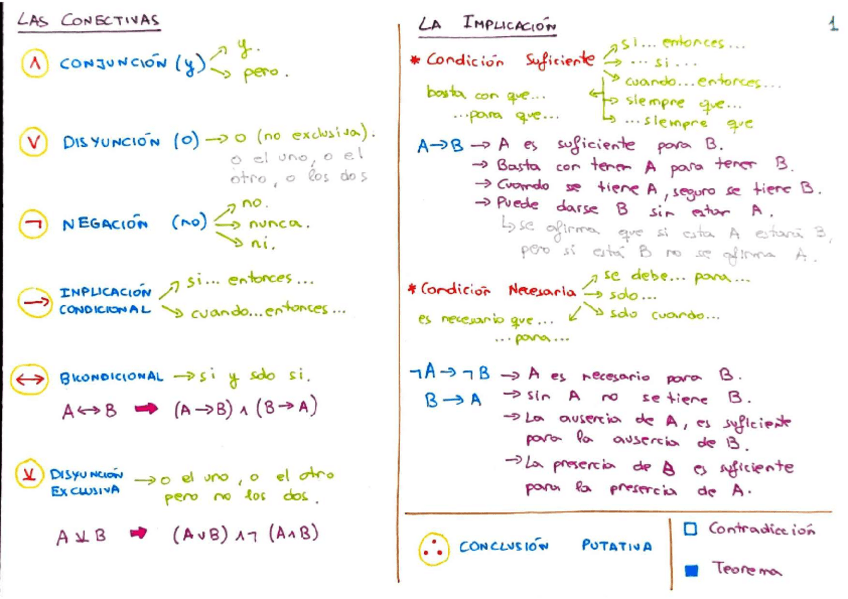 LAS CONECTIVAS
∧ CONJUNCIÓN (y) → y.
→ pero.
∨ DISYUNCIÓN (o) → o (no exclusiva).
o el uno, o el
otro, o los dos
¬ NEGACIÓN (no) → no.
→ nunca.
→ ni.
→ IMPLICACIÓN
CONDICIONAL
→ si... entonces...
→ cuando...entonces...
↔ BICONDICIONAL → si y solo si.
A ↔ B ➡ (A → B) ∧ (B → A)
⊻ DISYUNCIÓN
EXCLUSIVA
→ o el uno, o el otro
pero no los dos.
A ⊻ B ➡ (A ∨ B) ∧ ¬ (A ∧ B)
LA IMPLICACIÓN
1
* Condición Suficiente → si... entonces...
→ ... si ...
→ cuando...entonces...
→ siempre que...
→ ...siempre que
basta con que...
...para que...
A → B → A es suficiente para B.
→ Basta con tener A para tener B.
→ Cuando se tiene A, seguro se tiene B.
→ Puede darse B sin estar A.
↳ se afirma que si esta A estará B,
pero si está B no se afirma A.
* Condición Necesaria → se debe... para...
→ solo...
→ solo cuando...
es necesario que...
... para...
¬A → ¬B → A es necesario para B.
B → A → sin A no se tiene B.
→ La ausencia de A, es suficiente
para la ausencia de B.
→ La presencia de B es suficiente
para la presencia de A.
∴ CONCLUSIÓN PUTATIVA
□ Contradicción
■ Teorema